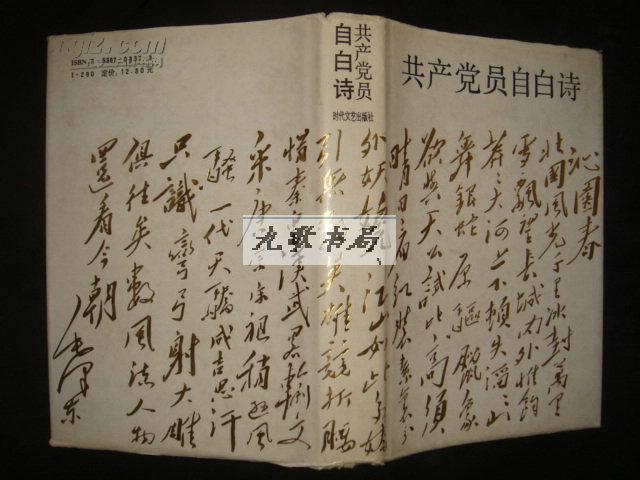 共产党员自白诗
沁园春
北国风光千里冰封万里
雪飘望长城内外惟余
莽〻大河上下顿失滔〻
舞银蛇原驱腊象
欲与天公试比高须
晴日看红装素裹分
外妖娆江山如此多娇
引无 英雄竞折腰
惜秦 汉武略输文
采〻唐宗宋祖稍逊风
骚一代天骄成吉思汗
只识弯弓射大雕
俱往矣数风流人物
还看今朝
毛泽东
共产党员
自白诗
时代文艺出版社
1-290 定价：12.80元
九歌书局